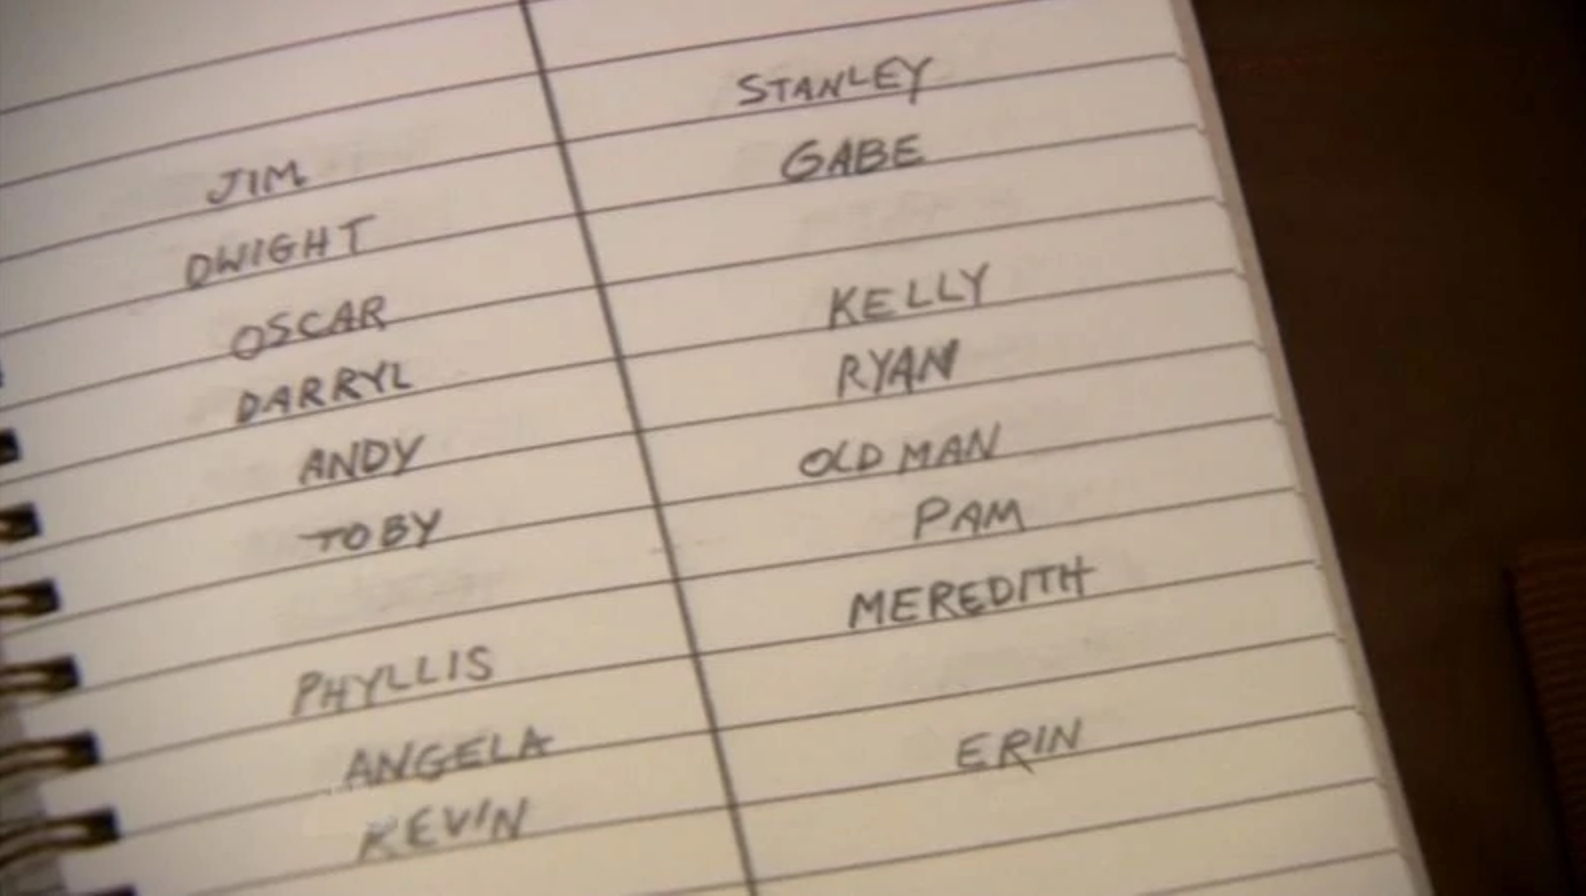 JIM
DWIGHT
OSCAR
DARRYL
ANDY
TOBY
PHYLLIS
ANGELA
KEVIN
STANLEY
GABE
KELLY
RYAN
OLD MAN
PAM
MEREDITH
ERIN